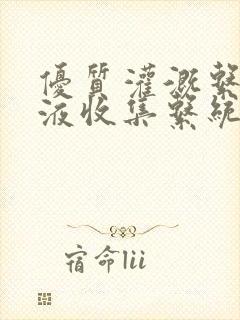 優質灌溉繫
液收集繫統
宿命lii